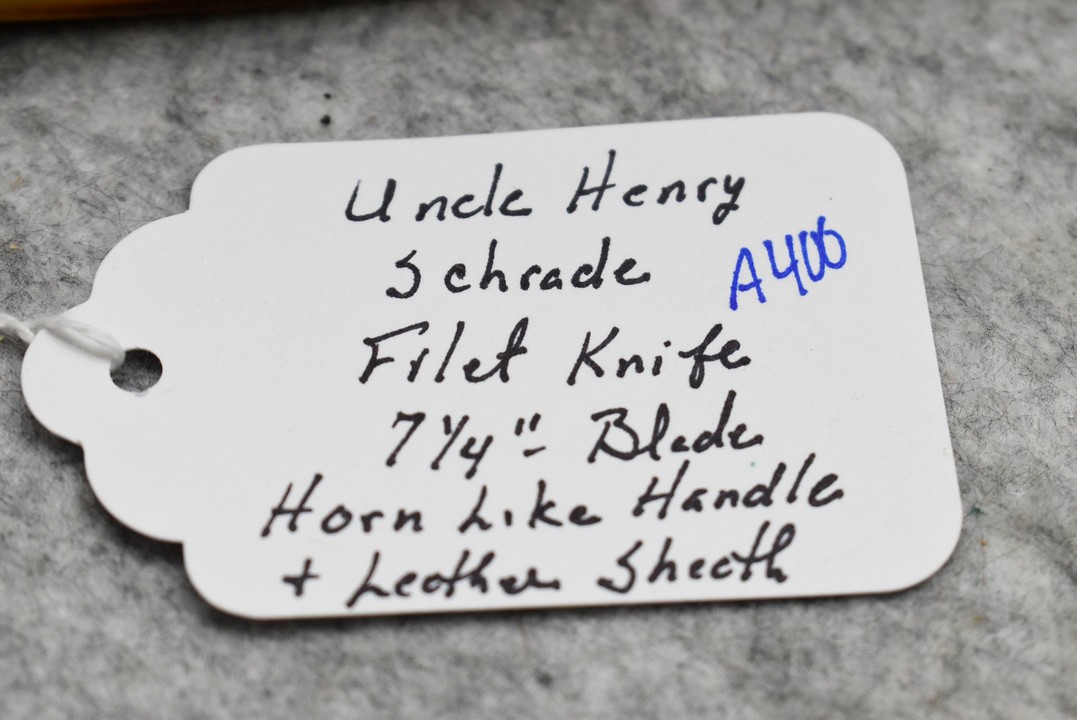 Uncle Henry
Schrade
A400
Filet Knife
7 1/4" - Blade
Horn Like Handle
+ Leather Sheath